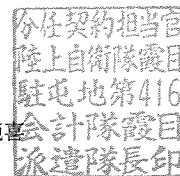 分任契約担当官
陸上自衛隊霞目
駐屯地第416
会計隊霞目
派遣隊長印
喜